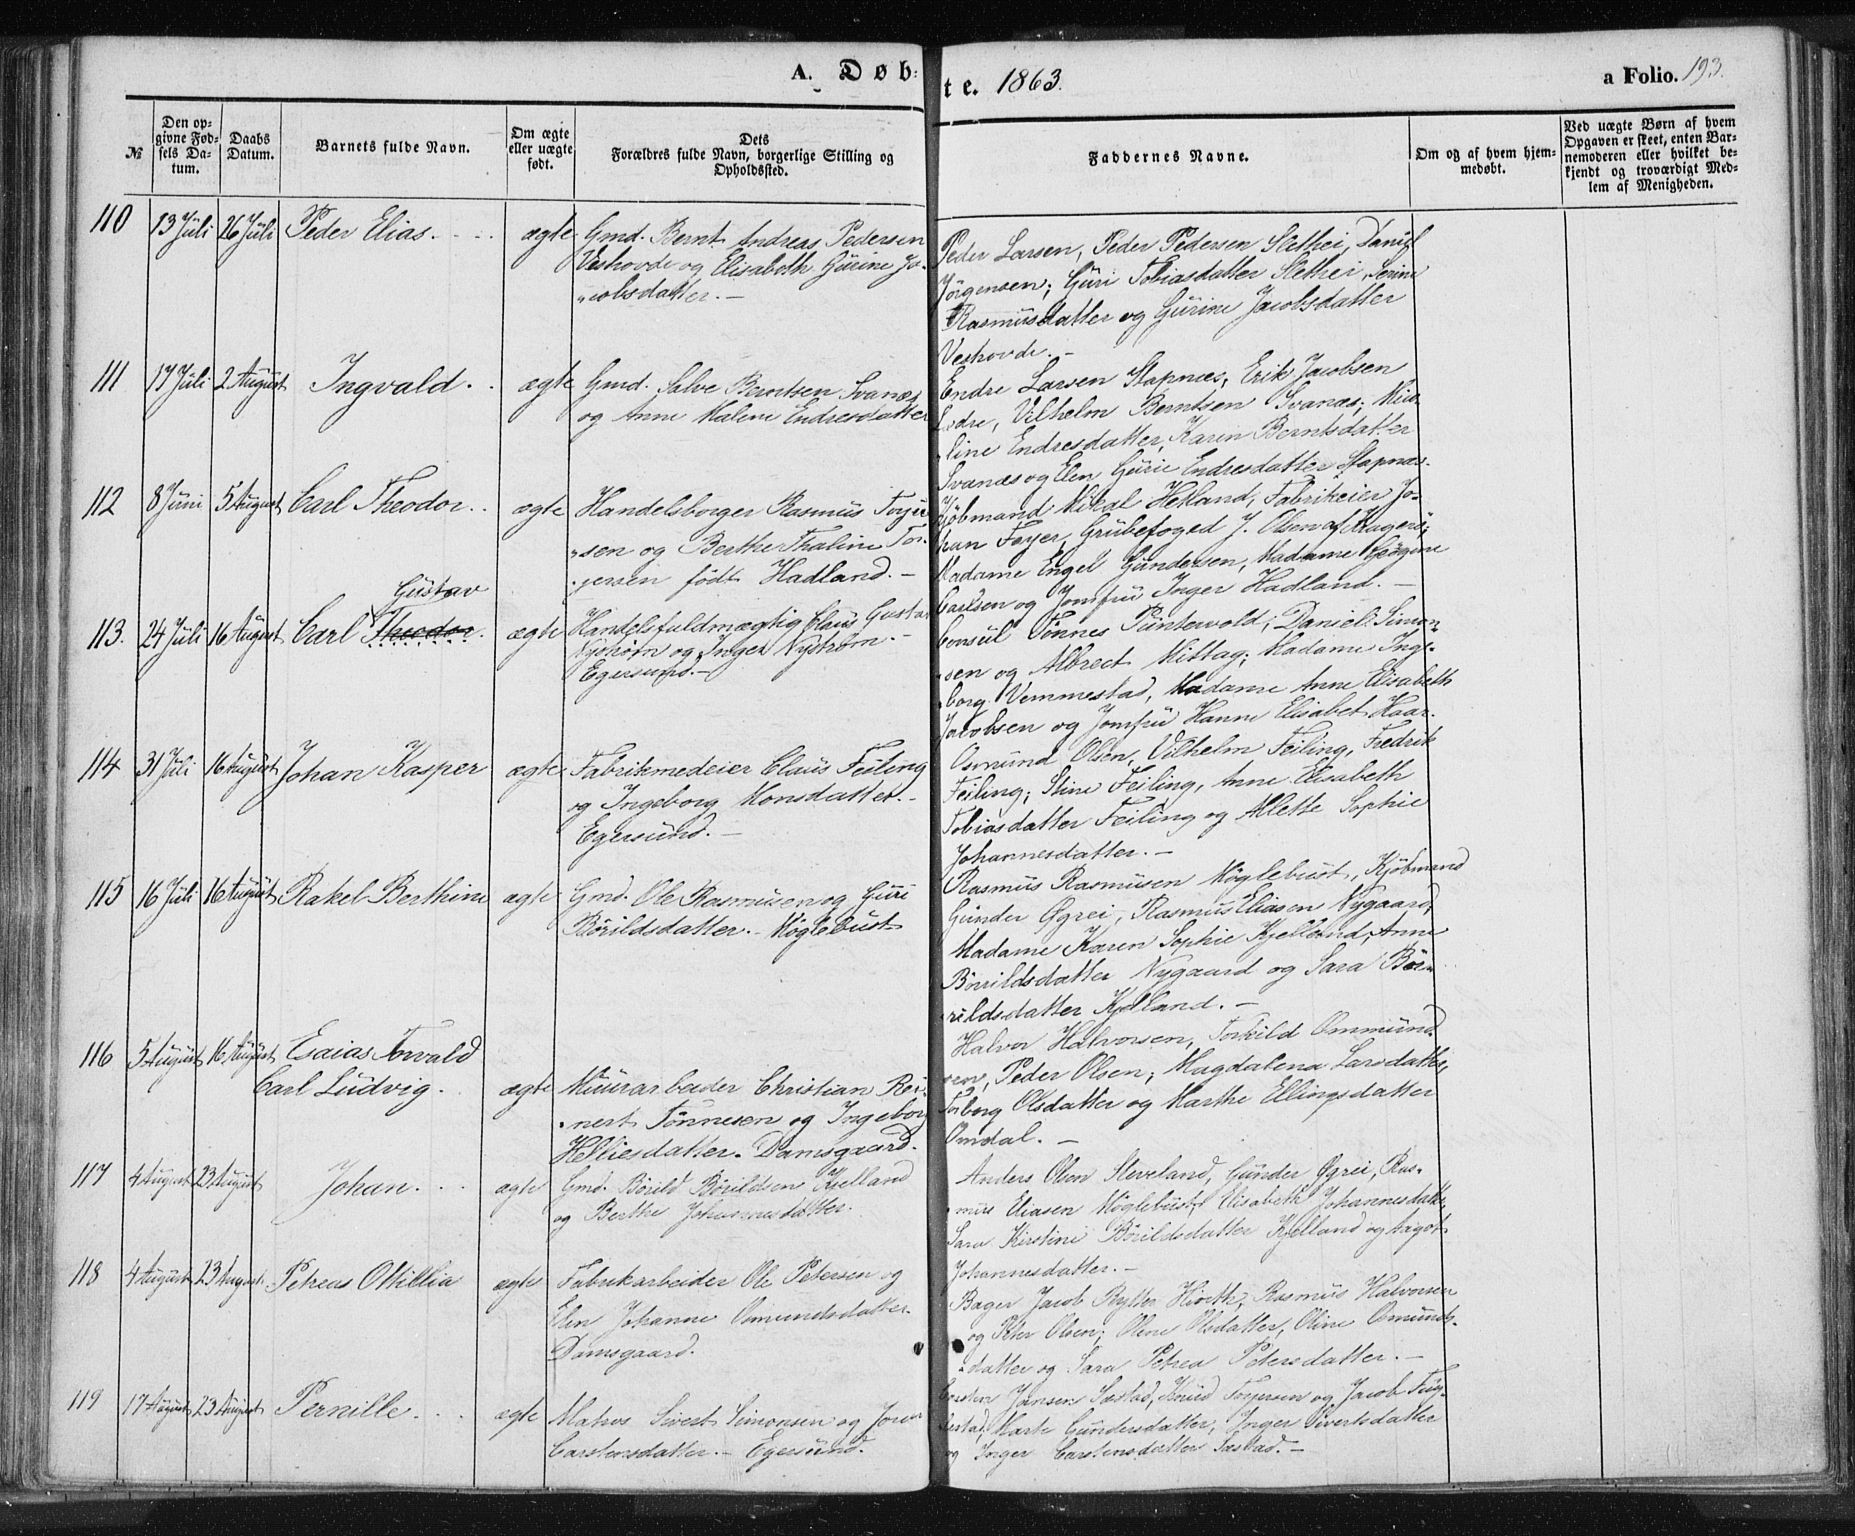 A. Døb-
te. 1863.
a Folio. 193.
№
Den op-
givne Fød-
sels Da-
tum.
Daabs
Datum.
Barnets fulde Navn.
Om ægte
eller uægte
født.
Dets
Forældres fulde Navn, borgerlige Stilling og
Opholdssted.
Faddernes Navne.
Om og af hvem hjem-
medøbt.
Ved uægte Børn af hvem
Opgaven er skeet, enten Bar-
nemoderen eller hvilket be-
kjendt og troværdigt Med-
lem af Menigheden.
110 13 Juli 26 Juli Peder Elias. ægte Gmd. Bernt Andreas Pedersen
Veshovde og Elisabeth Gurine Ja-
"cobsdatter. –
Peder Larsen, Peder Pedersen Slethei, Daniel
Jörgensen; Guri Tobiasdatter Slethei, Serine
Rasmusdatter og Gurine Jacobsdatter
Veshovde. –
111 17 Juli 2 August Ingvald. ægte Gmd. Salve Berntsen Svanæs
og Anne Malene Endresdatter
Endre Larsen Stapnæs, Erik Jacobsen
Vilhelm Berntsen Svanæs;
"line Endresdatter, Karen Berntsdatter
Svanæs og Elen Gurie Endresdatter Stapnæs.
112 8 Juni 5 August Carl Theodor. ægte Handelsborger Rasmus Torjer
"sen og Berthe Thaline Tor-
"jersen födt Hadland. –
Kjöbmand Mikal Hetland, Fabrikeier Jo-
han Feyer, Grubefoged J. Olsen af Kragerö;
Madame Engel Gundersen, Madame Geögine
Carlsen og Jomfru Inger Hadland. –
Gustav
113. 24 Juli 16 August Carl Theodor. ægte Handelsfuldmægtig Claus Gustav
Nyström og Inger Nyström. –
Egersund. –
Consul Tönnes Puntervold; Daniel Simon-
"sen og Albrect Mittag; Madame Inge-
"borg Vemmestad, Madame Anne Elisabeth
Jacobsen og Jomfru Hanne Elisabet Haar.
114 31 Juli 16 August Johan Kasper ægte Fabrikmedeier Claus Feiling
og Ingeborg Monsdatter. –
Egersund. –
Osmund Olsen, Vilhelm Feiling, Fredrik
Feiling; Stine Feiling, Anne Elisabeth
Tobiasdatter Feiling og Allette Sophie
Johannesdatter. –
115 16 Juli 16 August Rakel Berthine ægte Gmd. Ole Rasmusen og Guri
Börildsdatter. – Möglebust
Rasmus Rasmusen Möglebust, Kjöbmand
Gunder Øgrei, Rasmus Eliasen Nygaard;
Madame Karen Sophie Kjelland; Anne
Börildsdatter Nygaard og Sara Bö-
"rildsdatter Kjelland. –
116 5 August 16 August Esaias Torvald
Carl Ludvig. ægte Muurarbeider Christian Rei-
"nert Tönnesen og Ingeborg
Helliesdatter. Damsgaard.
Halvor Halvorsen, Torkild Ommund-
sen, Peder Olsen; Magdalena Larsdatter,
Torborg Olsdatter og Marthe Ellingsdatter
Omdal. –
117 4 August 23 August Johan. ægte Gmd. Börild Börildsen Kjelland
og Berthe Johannesdatter.
Anders Olsen Sleveland, Gunder Øgrei, Ras-
"mus Eliasen Möglebust; Elisabeth Johannesdatter,
Sara Kirstine Börildsdatter Kjelland og Aagot
Johannesdatter. –
118 4 August 23 August Petreas Ottillia ægte Fabrikarbeider Ole Petersen og
Elen Johanne Osmundsdatter.
Damsgaard.
Bager Jacob Rytter Hiorth, Rasmus Halvorsen
og Peter Olsen; Olene Olsdatter, Oline Osmunds-
"datter og Sara Petrea Petersdatter. –
119 17 August 23 August Pernille. ægte Matros Sivert Simonsen og Joren
Carstensdatter. – Egersund.
Carsten Jansen Sæstad, Knud Torjersen og Jacob Fug-
lestad; Marte Gundersdatter, Inger Sivertsdatter
og Inger Carstensdatter Sæstad. –